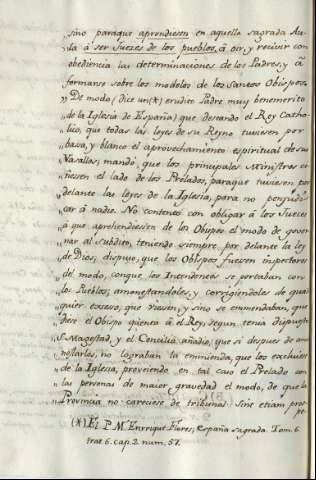 „sino paraque aprendiesen en aquella sagrada Au-
„la â ser Juezes de los pueblos, â oir, y recivir con
„obediencia las determinaciones de los Padres, y â
„formarse sobre los modelos de los Santos Obispos.
„De modo (dice un(*) erudito Padre muy benemerito
„de la Iglesia de España) que deseando el Rey Catho-
„lico, que todas las leyes de su Reyno tuviesen por
„basa, y blanco el aprovechamiento espiritual de sus
„Vasallos, mandó, que los principales Ministros es-
„tuviesen al lado de los Prelados, paraque tuviesen por
„delante las leyes de la Iglesia, para no perjudi-
„car â nadie. No contento con obligar â los Jueces
„a que aprehendiessen de los Obispos el modo de gover-
„nar al subdito, teniendo siempre por delante la ley
„de Dios; dispuso, que los Obispos fuesen inspectores
„del modo, conque los Intendentes se portaban con
„los Pueblos; amonestandoles, y corrigiendoles de qual
„quier excesso, que viesen, y sino se enmendaban, que
„diese el Obispo quenta â el Rey, segun tenia dispuesto
„S. Magestad, y el Concilio añadio, que si despues de amo-
„nestarlos, no lograban la enmienda, que los excluiesen
„de la Iglesia, proveiendo en tal caso el Prelado con
„las personas de maior gravedad el modo, de que la
„Provincia no careciese de tribunal. Sint etiam pros-
pe-
(*) El P. M. Enrrique Florez, España sagrada. Tom. 6.
trat. 6. cap. 2. num. 57.